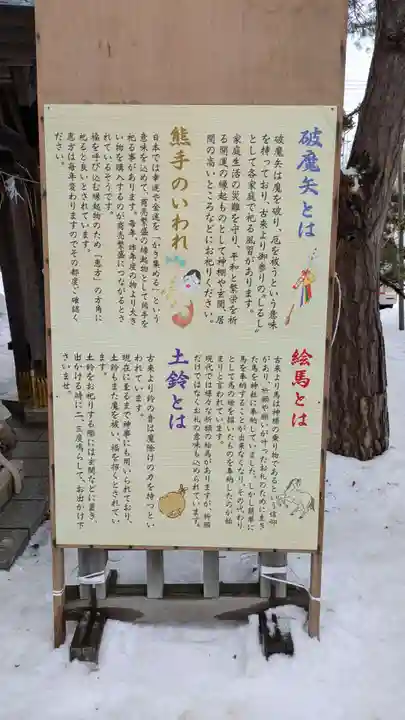 破魔矢とは
破魔矢は魔を破り、厄を祓うという意味
を持っており、古来より御参りの“しるし”
として各家庭で祀る風習があります。
家庭生活の災難を守り、平和と繁栄を祈
る開運の縁起ものとして神棚や玄関、居
間の高いところなどにお祀りください。
熊手のいわれ
日本では幸運や金運を「かき集める」という
意味を込めて、商売繁盛の縁起物として熊手を
祀る事があります。毎年、昨年度の物より大き
い物を購入するのが商売繁盛につながるとさ
れているそうです。
福を呼び込む縁起物のため「恵方」の方角に
祀ると良いとされています。
恵方は毎年変わりますのでその都度ご確認く
ださい。
絵馬とは
古来より馬は神様の乗り物であるという信仰
があり、祈願や願いが叶ったお礼のために生き
た馬を神社に奉納してきました。しかし簡単に
馬を奉納することが出来なくなり、その代わり
として馬の絵を描いたものを奉納したのが始
まりと言われています。
現代では様々な祈願の絵馬がありますが、祈願
だけではなくお礼の意味も込められています。
土鈴とは
古来より鈴の音は魔除けの力を持つとい
われています。
現在にいたるまで神事にも用いられており、
土鈴もまた魔を祓い、福を招くとされてい
ます。
土鈴をお祀りする際には玄関などに置き、
出かける時に二、三度鳴らして、お出かけ下
さいませ。